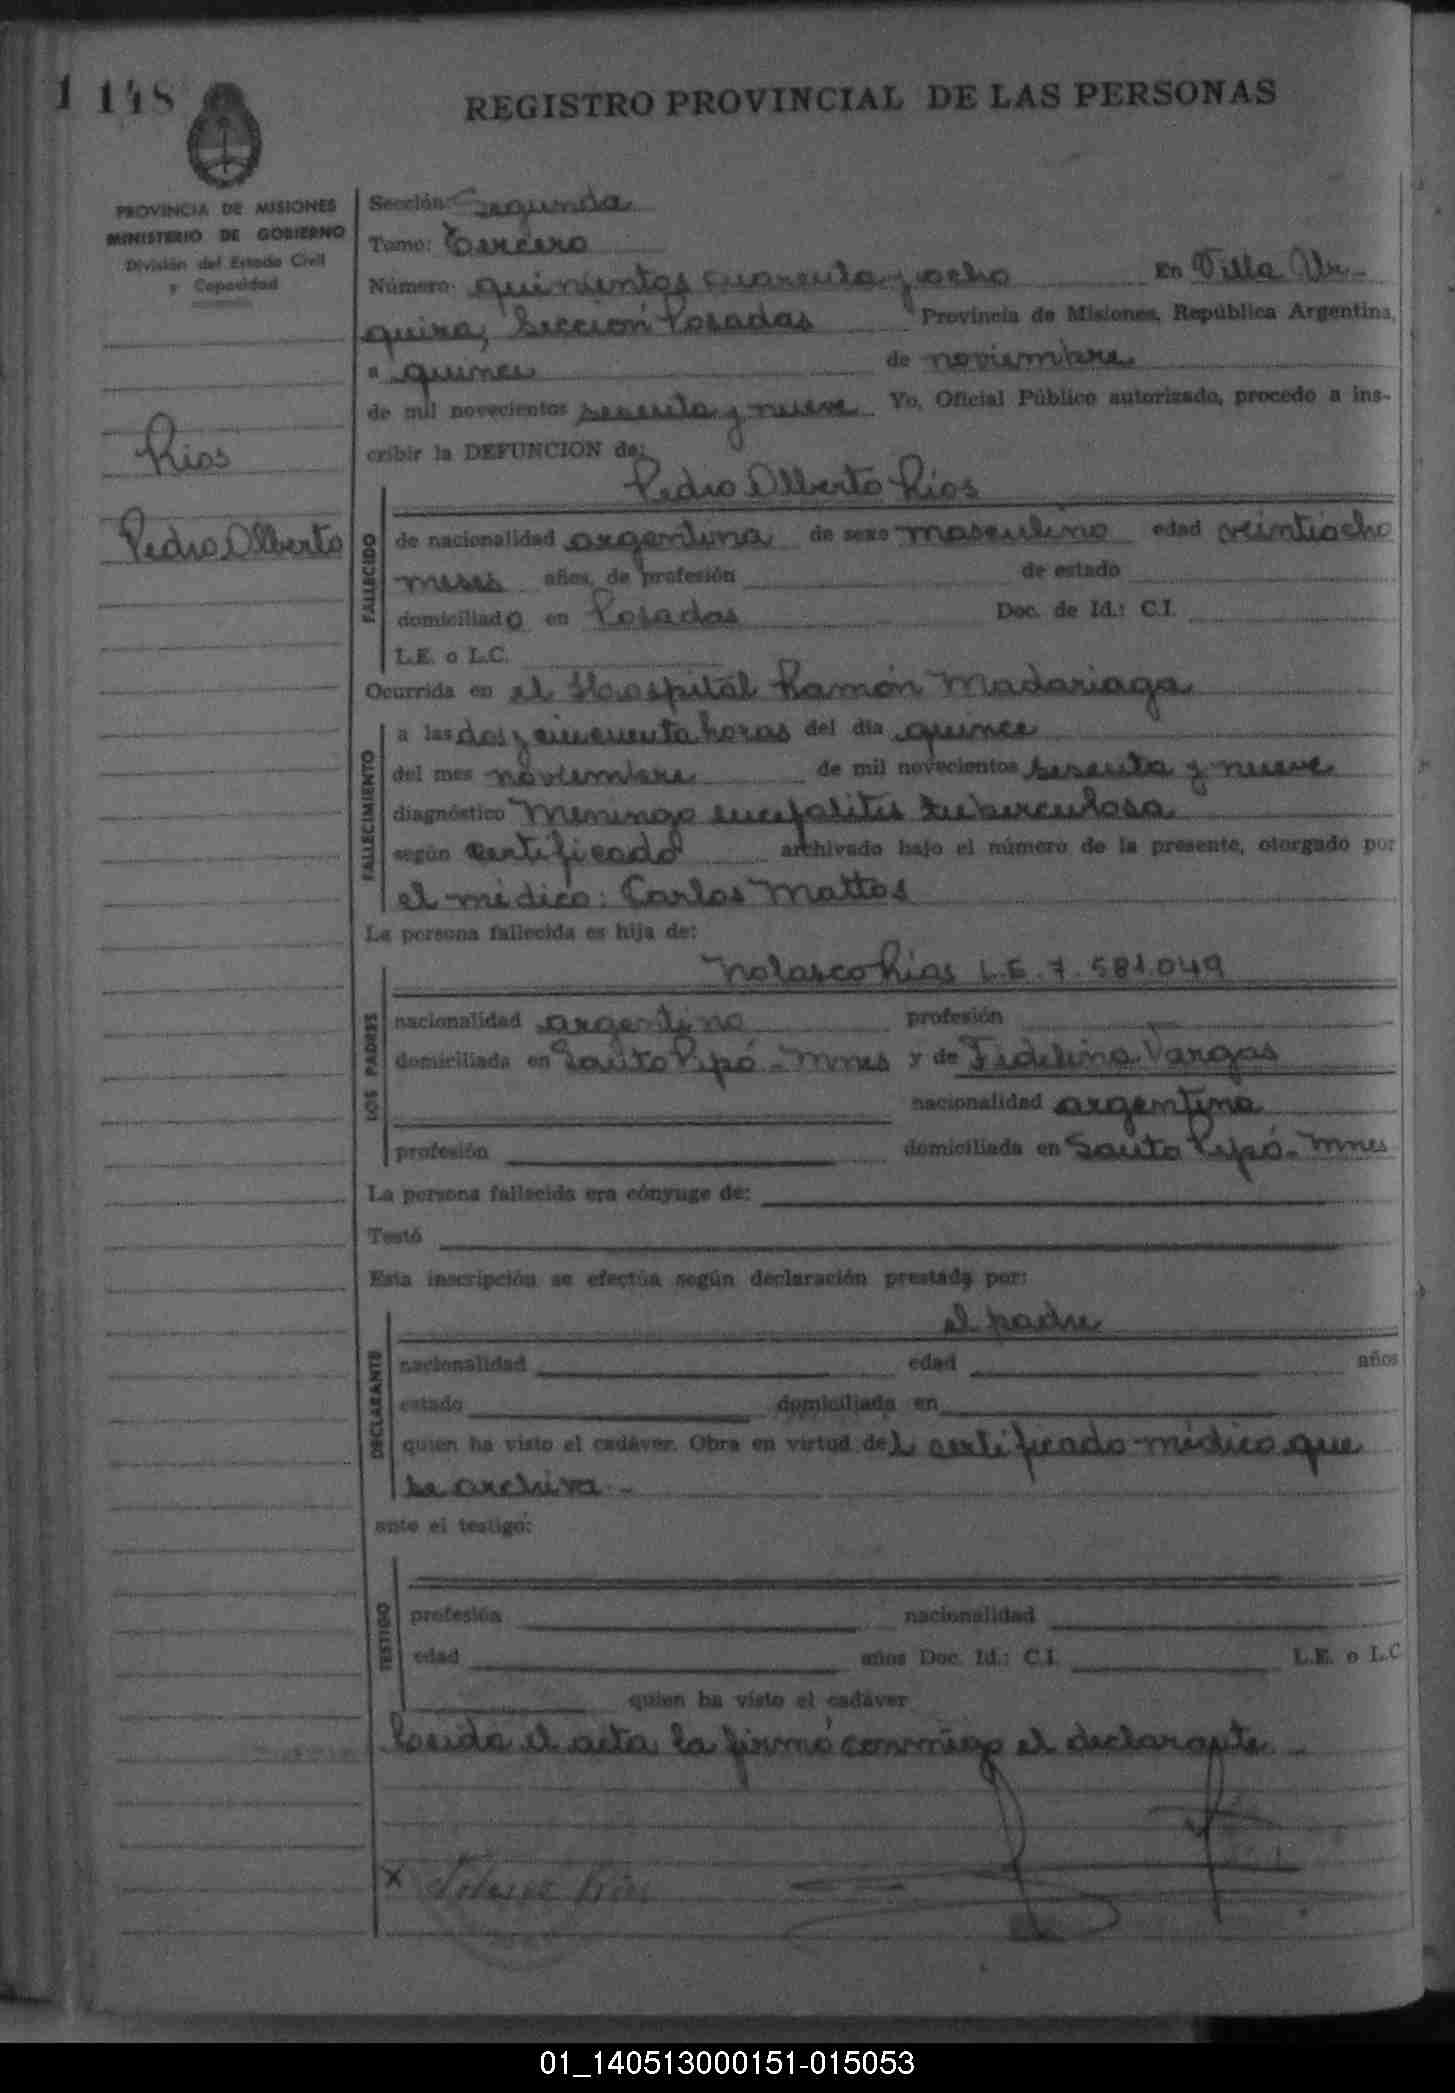 1 148
REGISTRO PROVINCIAL DE LAS PERSONAS
PROVINCIA DE MISIONES
MINISTERIO DE GOBIERNO
División del Estado Civil
y Capacidad
Rios
Pedro Alberto
Sección: Segunda
Tomo: Tercero
Número: quinientos cuarenta y ocho En Villa Ur-
quiza, Sección Posadas Provincia de Misiones, República Argentina,
a quince de noviembre
de mil novecientos sesenta y nueve Yo, Oficial Público autorizado, procedo a ins-
cribir la DEFUNCION de:
Pedro Alberto Rios
FALLECIDO
de nacionalidad argentina de sexo masculino edad veintiocho
meses años, de profesión de estado
domiciliado en Posadas Doc. de Id.: C.I.
L.E. o L.C.
Ocurrida en el Hospital Ramón Madariaga
FALLECIMIENTO
a las dos y cincuenta horas del día quince
del mes noviembre de mil novecientos sesenta y nueve
diagnóstico Meningo encefalitis tuberculosa
según certificado archivado bajo el número de la presente, otorgado por
el médico: Carlos Mattos
La persona fallecida es hija de:
Nolasco Rios L.E. 7.581.049
LOS PADRES
nacionalidad argentino profesión
domiciliada en Santo Pipó - Mnes y de Fidelina Vargas
nacionalidad argentina
profesión domiciliada en Santo Pipó - Mnes
La persona fallecida era cónyuge de:
Testó
Esta inscripción se efectúa según declaración prestada por:
el padre
DECLARANTE
nacionalidad edad años
estado domiciliada en
quien ha visto el cadáver. Obra en virtud del certificado médico que
se archiva.-
ante el testigo:
TESTIGO
profesión nacionalidad
edad años Doc. Id.: C.I. L.E. o L.C
quien ha visto el cadáver
Leida el acta la firmó conmigo el declarante.-
x Nolasco Rios
01_140513000151-015053